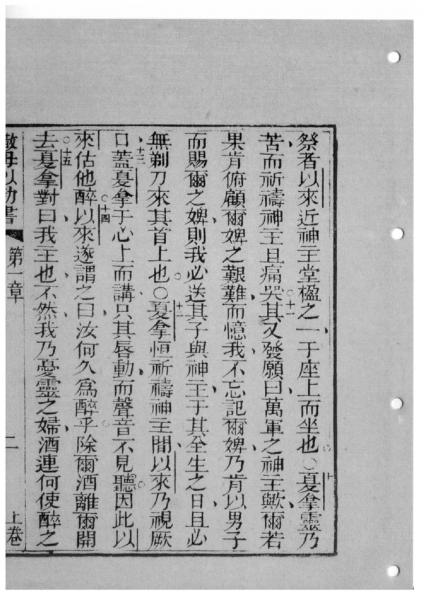 祭者以來近神王堂楹之一于座上而坐也○夏拿靈乃
十
苦而祈禱神王且痛哭其又發願曰萬軍之神王歟爾若
十一
果肯俯顧爾婢之艱難而憶我不忘記爾婢乃肯以男子
而賜爾之婢則我必送其子與神王于其全生之日且必
無剃刀來其首上也○夏拿恒祈禱神王間以來乃視厥
十二
口蓋夏拿于心上而講只其唇動而聲音不見聽因此以
十三
來估他醉以來遂謂之曰汝何久為醉乎除爾酒離爾開
十四
去夏拿對曰我王也不然我乃憂靈之婦酒連何使醉之
十五
母以勿書 第一章 二 上卷